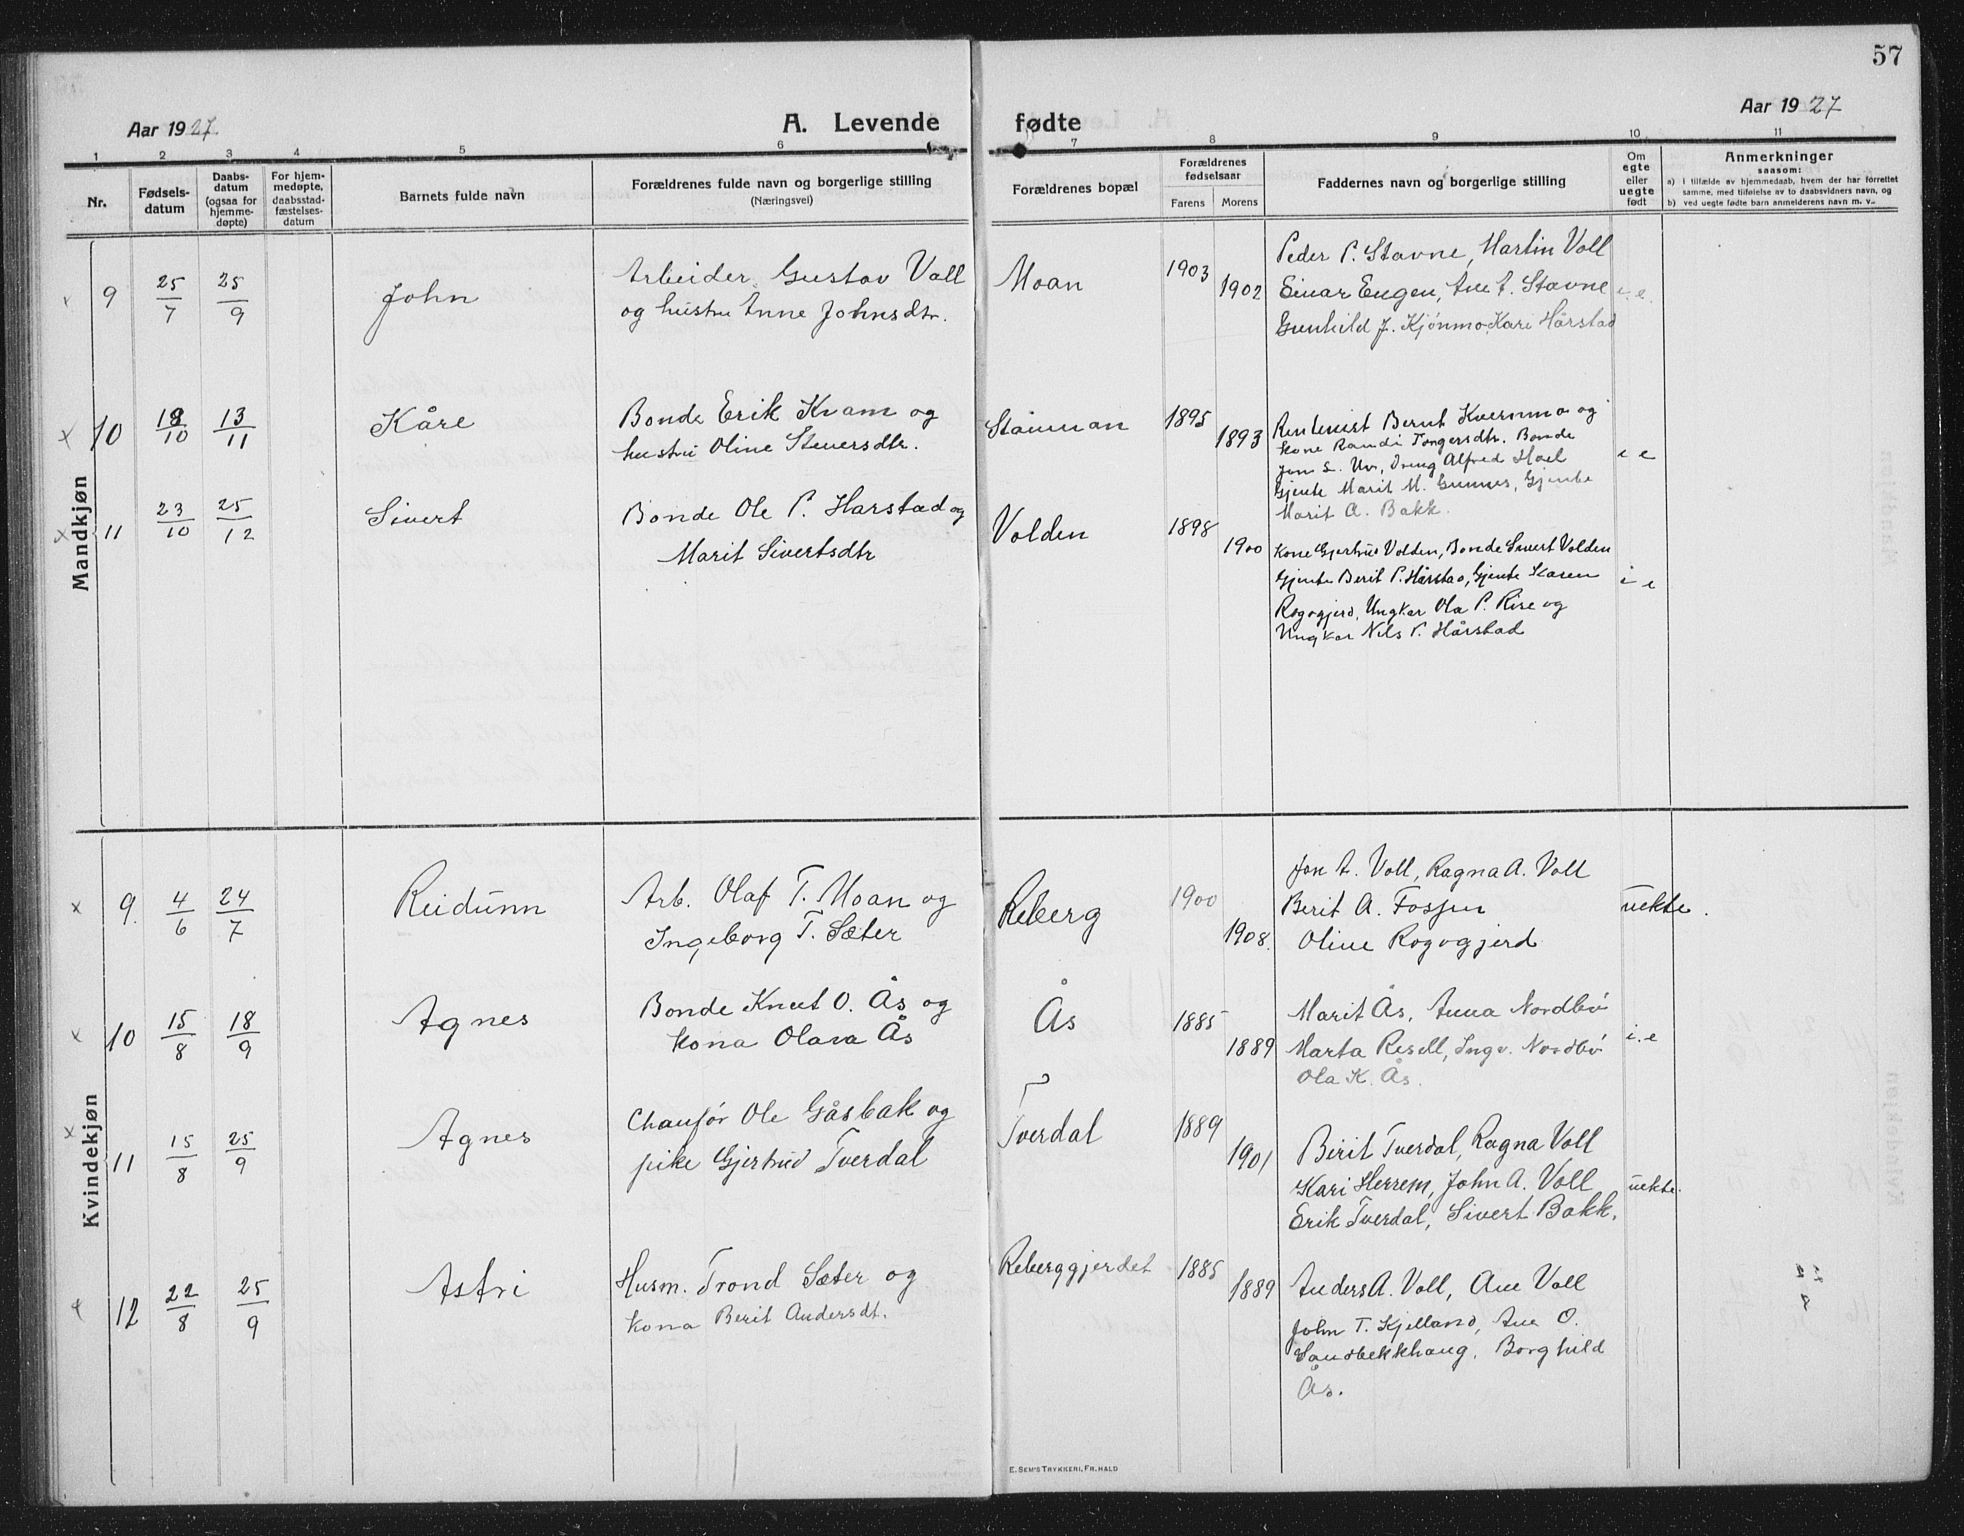 57
Aar 1927
A. Levende fødte
Aar 1927
1 2 3 4 5 6 7 8 9 10 11
Nr.
Fødsels-
datum
Daabs-
datum
(ogsaa for
hjemme-
døpte)
For hjem-
medøpte,
daabsstad-
fæstelses-
datum
Barnets fulde navn
Forældrenes fulde navn og borgerlige stilling
(Næringsvei)
Forældrenes bopæl
Forældrenes
fødselsaar
Farens Morens
Faddernes navn og borgerlige stilling
Om
egte
eller
uegte
født
Anmerkninger
saasom:
a) i tilfælde av hjemmedaab, hvem der har forrettet
samme, med tilføielse av to daabsvidners navn, og
b) ved uegte fødte barn anmelderens navn m. v.
Mandkjøn
x 9 25/7 25/9 John
Arbeider Gustav Voll
og hustru Anne Johnsdtr.
Moan 1903 1902
Peder P. Stavne, Martin Voll
Einar Engen, Ane A. Stavne
Gunhild J. Kjönmo, Kari Hårstad
i. e.
x 10 18/10 13/11 Kåre
Bonde Erik Kvam og
hustru Oline Steversdtr.
1895 1893
Bernt Kvernmo og
kone Randi Tongersdtr. Bonde
Jon L. Uv, Dreng Alfred Hoel
Gjente Marit M. Gunnes, Gjente
Marit A. Bakk.
i e
x 11 23/10 25/12 Sivert
Bonde Ole P. Harstad og
Marit Sivertsdtr
Volden 1898 1900
Kone Gjertrud Volden, Bonde Sivert Volden
Gjente Berit P. Hårstad, Gjente Karen
Rogogjerd, Ungkar Ola P. Rise og
Ungkar Nils P. Hårstad
i e
Kvindekjøn
x 9. 4/6 24/7 Reidunn
Arb. Olaf T. Moan og
Ingeborg T. Sæter
Reberg 1900 1908.
Jon A. Voll, Ragna A. Voll
Berit A. Fossen
Oline Rogogjerd
uekte.
x 10 15/8 18/9 Agnes
Bonde Knut O. Ås og
kona Olava Ås
Ås 1885 1889
Marit Ås, Anna Nordbö
Marta Resell, Ingv. Nordbö
Ola K. Ås.
i. e
x 11 15/8 25/9 Agnes
Chauför Ole Gåsbak og
pike Gjertrud Tverdal
Tverdal 1889 1901
Berit Tverdal, Ragna Voll
Kari Herrem, John A. Voll
Erik Tverdal, Sivert Bakk.
uekte.
x 12 22/8 25/9 Astri
Husm. Trond Sæter og
kona Berit Andersdt.
Reberggjerdet 1885 1889
Anders A. Voll, Ane Voll
John T. Kjelland, Ane O.
Sandbekkhaug, Borghild
Ås.
E. SEM'S TRYKKERI, FR. HALD